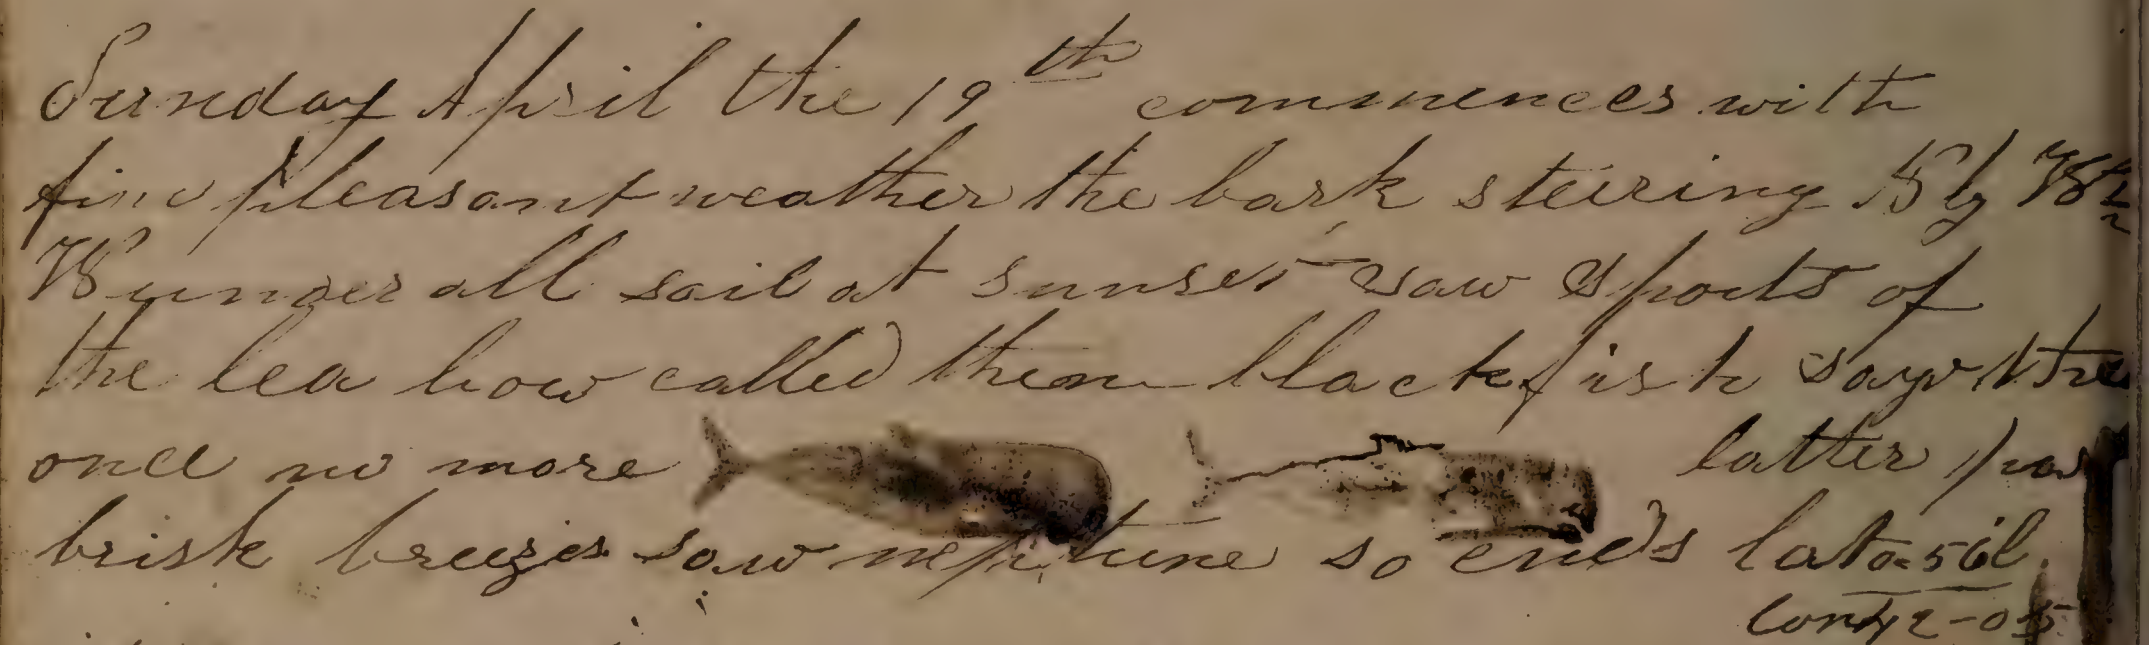 Sunday April the 19th commences with
fine pleasant weather the bark steering by W 1/2
W under all sail at sunset saw spouts of
the lea bow called them blackfish saw the
once no more latter par
brisk breezes saw neptune so ends lat
Lon 42-05